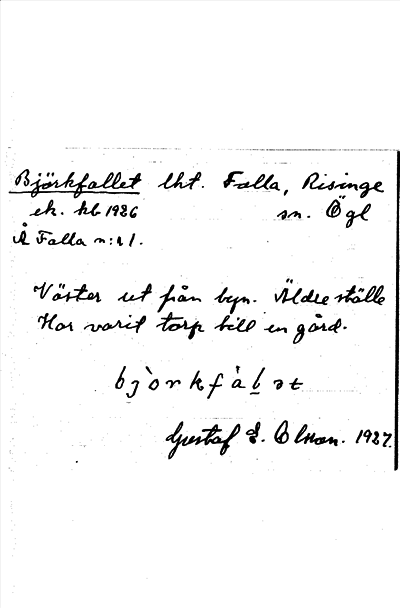 Björkfallet lht. Falla, Risinge
ek. kb 1926 sn. Ögl
Å Falla n:r 1.
Väster ut från byn. Äldre ställe
Har varit torp till en gård.
bjòrkfàḻət
Gustaf E. Olson. 1927.